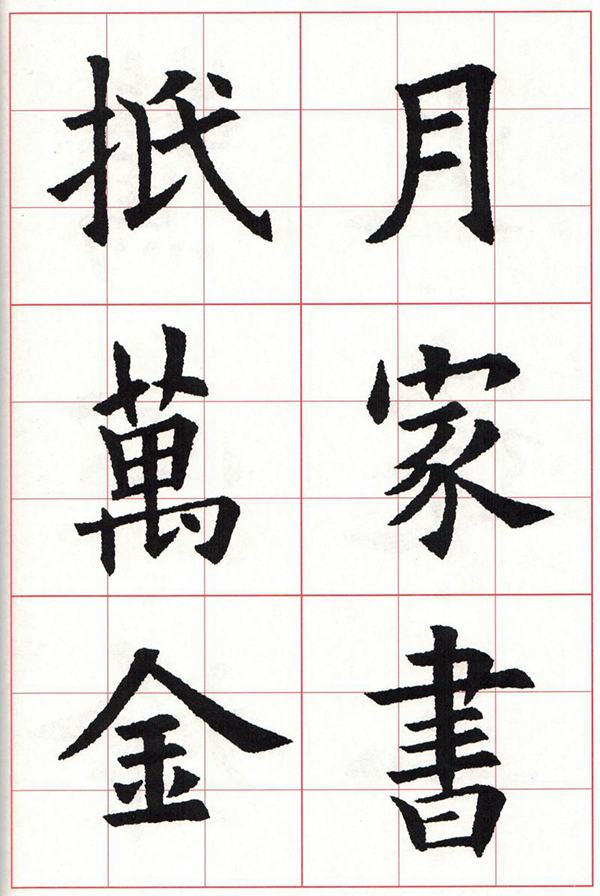 月家書
抵萬金